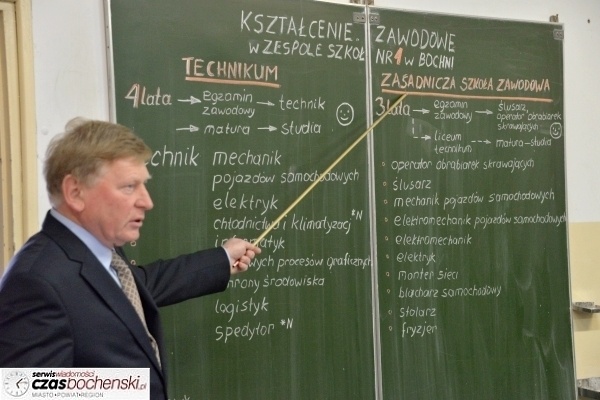 KSZTAŁCENIE ZAWODOWE
W ZESPOLE SZKÓŁ NR 1 W BOCHNI
TECHNIKUM
4 lata → egzamin zawodowy → technik
→ matura → studia
mechanik
pojazdów samochodowych
elektryk
chłodnictwa i klimatyzacj *N
procesów graficznych
środowiska
logistyk
spedytor *N
ZASADNICZA SZKOŁA ZAWODOWA
3 lata → egzamin zawodowy → ślusarz, operator obrabiarek skrawających
→ liceum technikum → matura - studia
operator obrabiarek skrawających
ślusarz
mechanik pojazdów samochodowych
elektromechanik pojazdów samochodowych
elektromechanik
elektryk
monter sieci
blacharz samochodowy
stolarz
fryzjer
serwis wiadomości
czasbocheński.pl
MIASTO•POWIAT•REGION